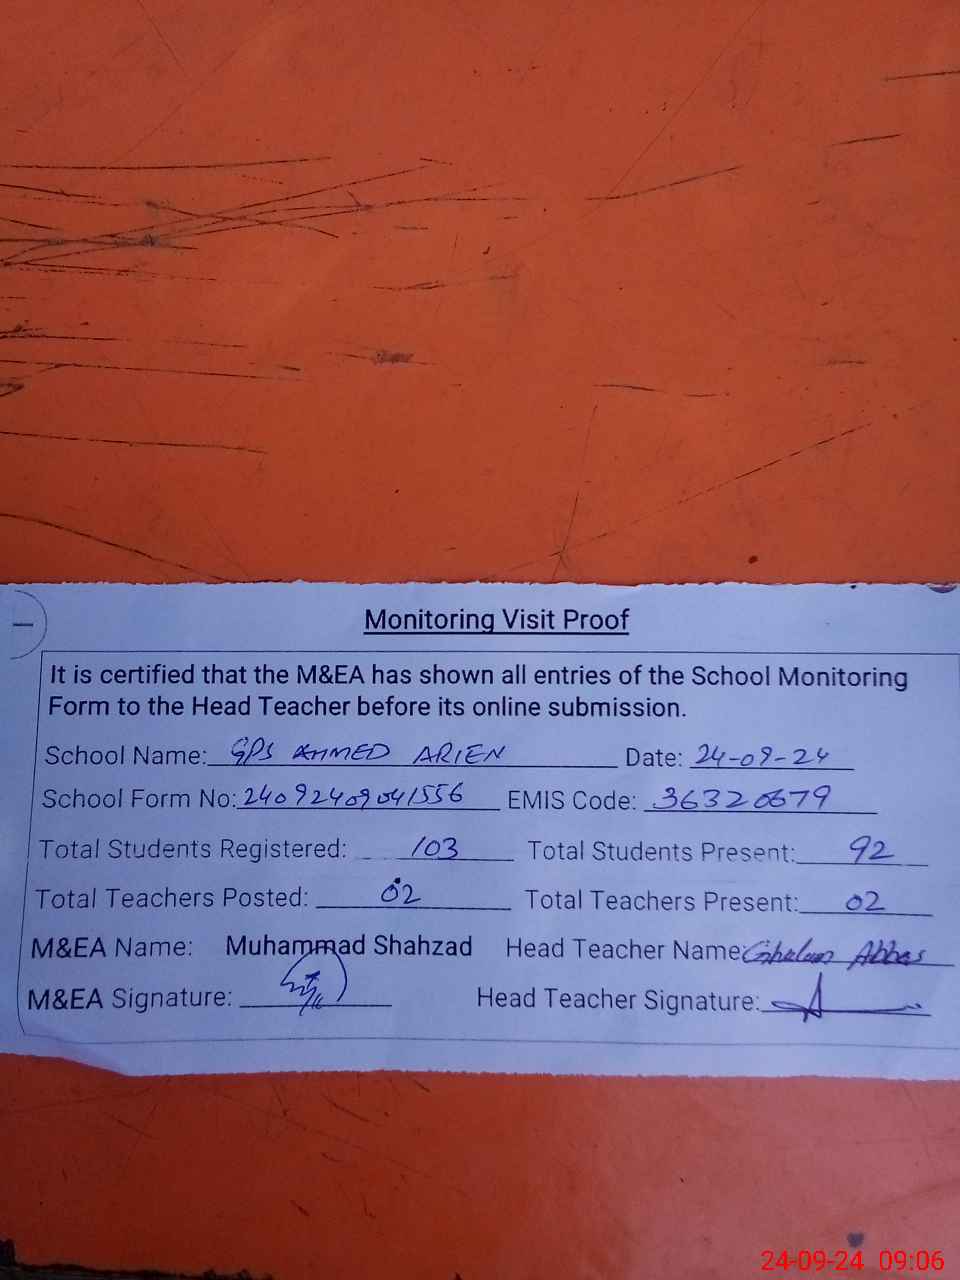 Monitoring Visit Proof
It is certified that the M&EA has shown all entries of the School Monitoring
Form to the Head Teacher before its online submission.
School Name: GPS AHMED ARIEN Date: 24-09-24
School Form No: 24092409041556 EMIS Code: 36320679
Total Students Registered: 103 Total Students Present: 92
Total Teachers Posted: 02 Total Teachers Present: 02
M&EA Name: Muhammad Shahzad Head Teacher Name: Ghulam Abbas
M&EA Signature: Head Teacher Signature:
24-09-24 09:06